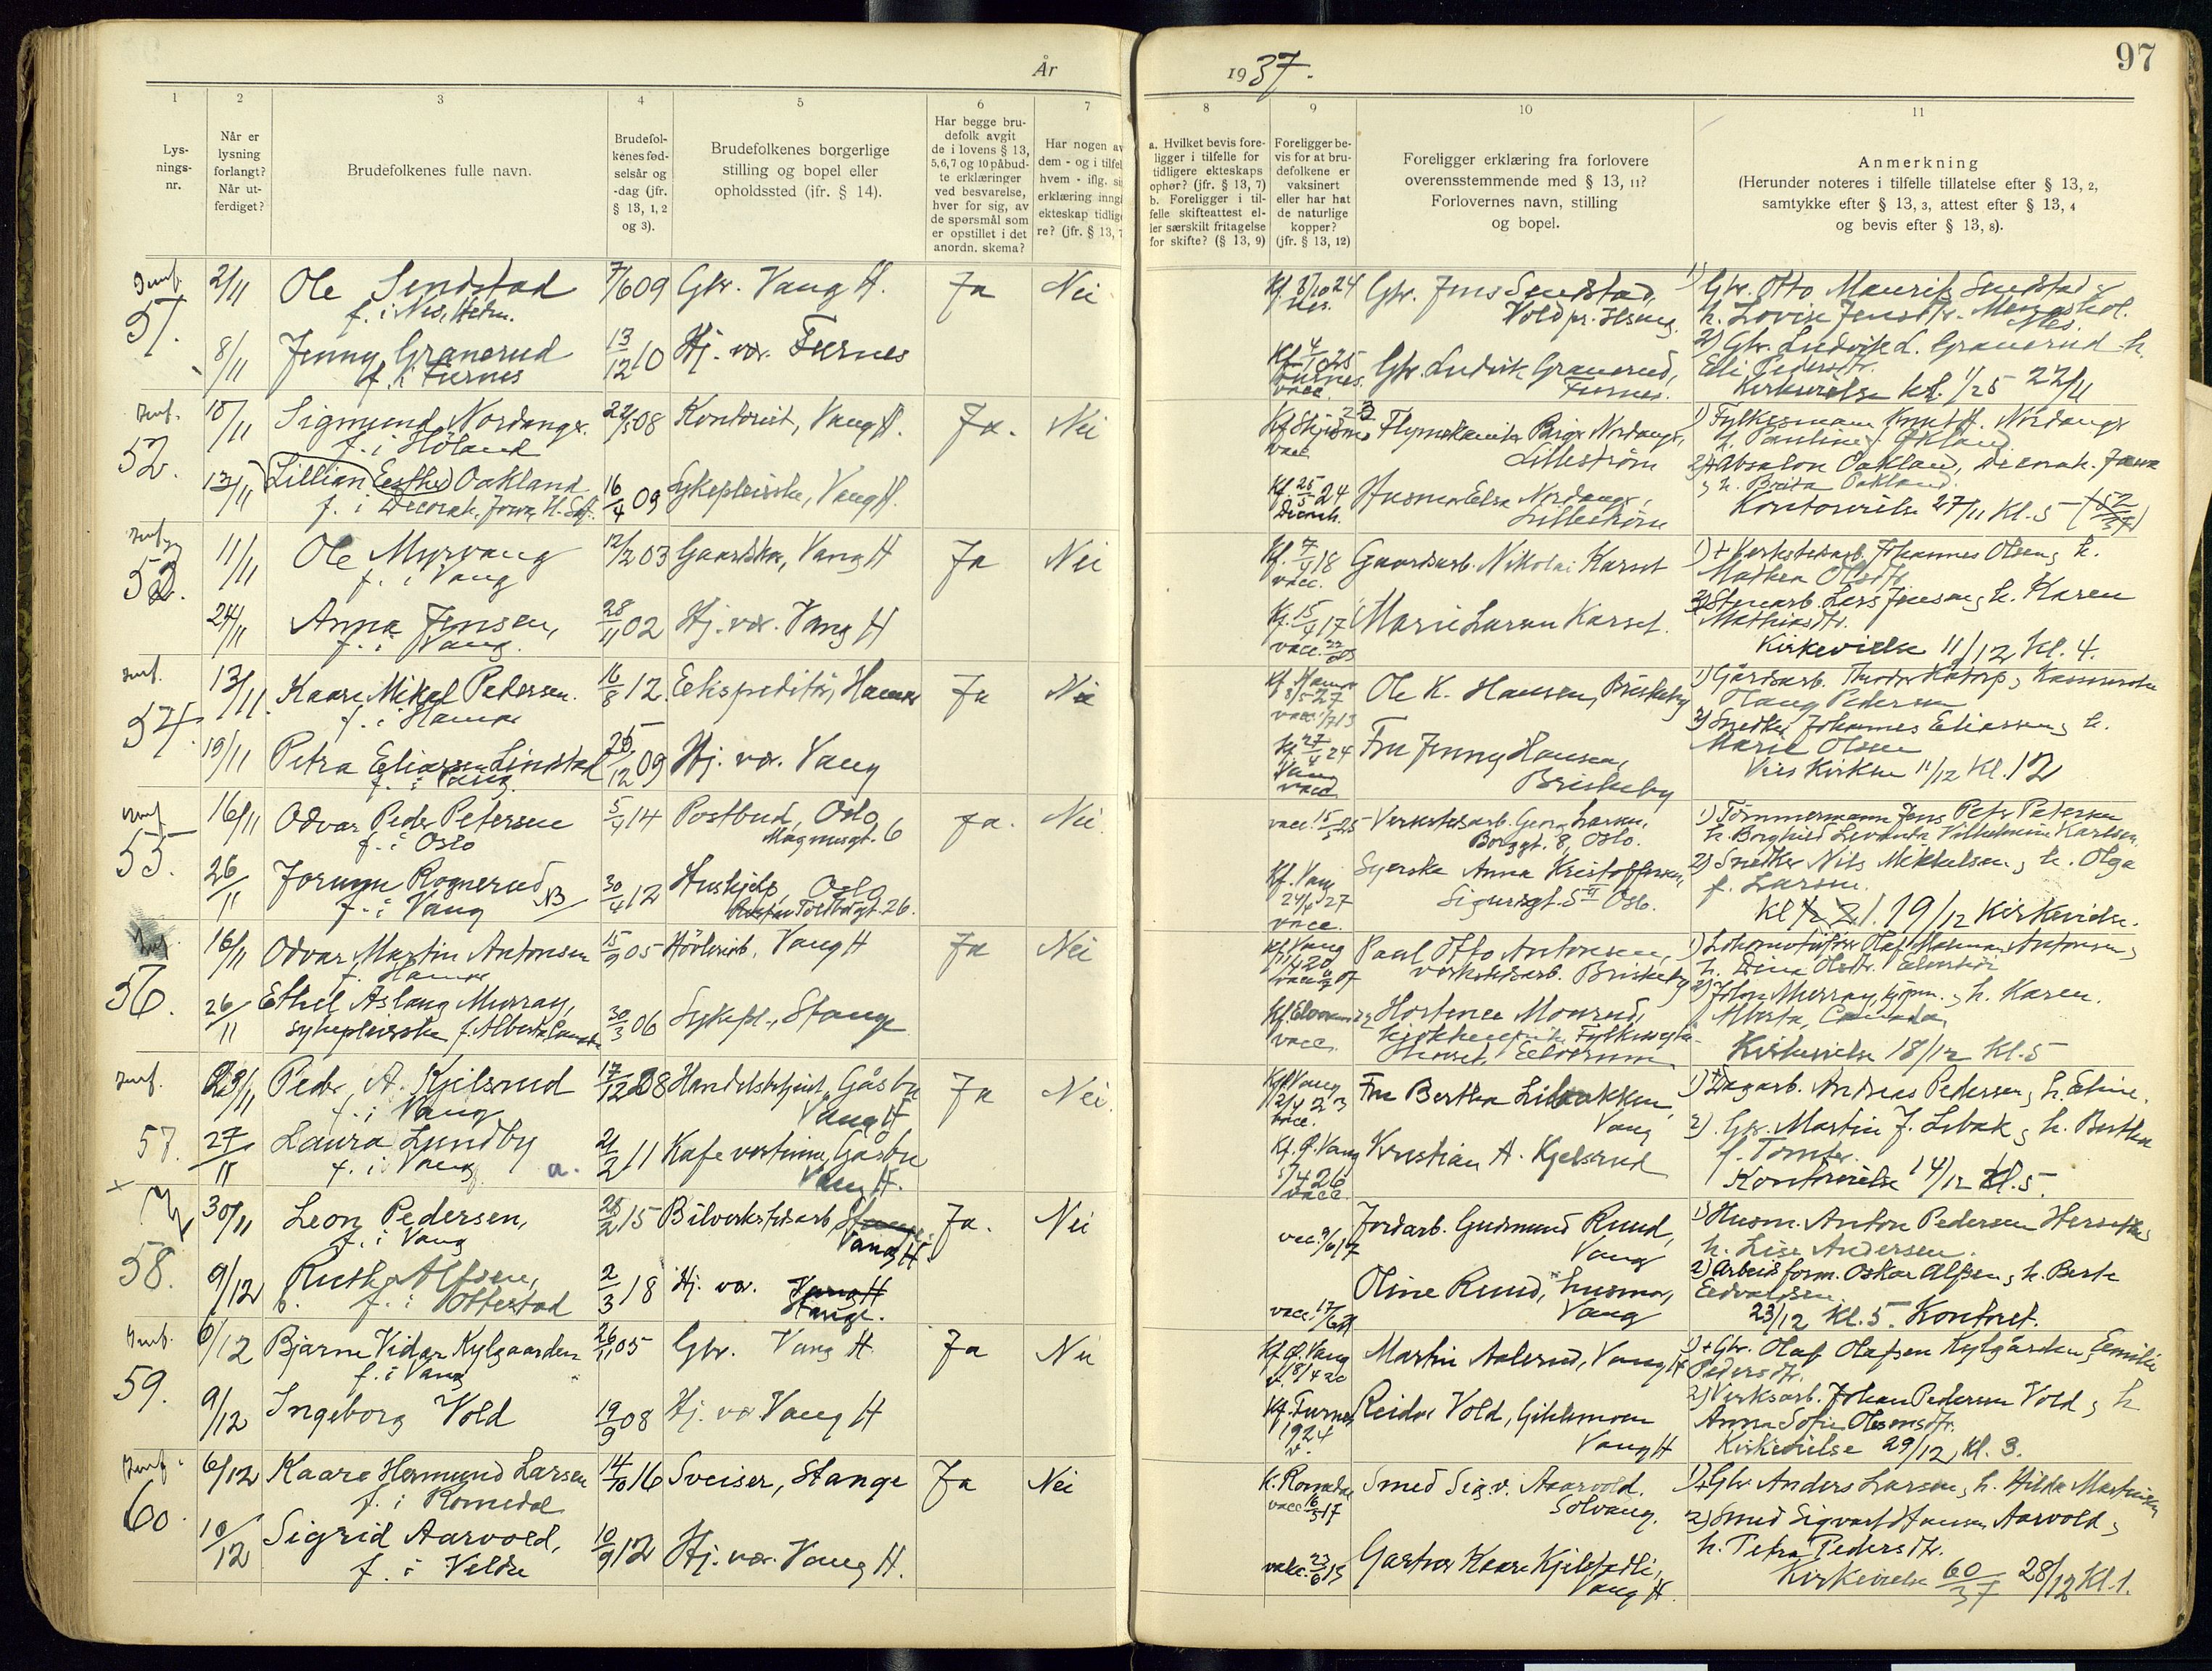 År 1937.
97
1
2
3
4
5
6
7
8
9
10
11
Lys-
nings-
nr.
Når er
lysning
forlangt?
Når ut-
ferdiget?
Brudefolkenes fulle navn.
Brudefol-
kenes fød-
selsår og
-dag (jfr.
§ 13, 1, 2
og 3).
Brudefolkenes borgerlige
stilling og bopel eller
opholdssted (jfr. § 14).
Har begge bru-
defolk avgit
de i lovens § 13,
5, 6, 7 og 10 påbud-
te erklæringer
ved besvarelse,
hver for sig, av
de spørsmål som
er opstillet i det
anordn. skema?
Har nogen av
dem - og i tilfel
hvem - iflg. si
erklæring inng
ekteskap tidlige
re? (jfr. § 13, 7
a. Hvilket bevis fore-
ligger i tilfelle for
tidligere ekteskaps
ophør? (jfr. § 13, 7)
b. Foreligger i til-
felle skifteattest el-
ler særskilt fritagelse
for skifte? (§ 13, 9)
Foreligger be-
vis for at bru-
defolkene er
vaksinert
eller har hat
de naturlige
kopper?
(jfr. § 13, 12)
Foreligger erklæring fra forlovere
overensstemmende med § 13, 11?
Forlovernes navn, stilling
og bopel.
Anmerkning
(Herunder noteres i tilfelle tillatelse efter § 13, 2,
samtykke efter § 13, 3, attest efter § 13, 4
og bevis efter § 13, 8).
51.
2/11 Ole Sendstad 7/6 09 Gbr. Vang H. Ja Nei
f. i Nes, Hedm.
Kf. 8/10 24 Nes.
Gbr. Jens Sendstad,
Vold pr. Ilseng
1) Gbr. Otto Maurits Sendstad &
h. Lovise Jensdtr.
Nes.
8/11 Jenny Granerud 13/12 10 Hj. vær. Furnes
f. i Furnes
Kf. 4/10 25 Furnes. vacc.
Gbr. Ludvik Granerud,
Furnes.
2) Gbr. Ludvik L. Granerud h.
Eli Pedersdtr.
Kirkevielse kl. 1/25 27/11
52.
10/11 Sigmund Nordanger 22/5 08 Kontorist, Vang H. Ja. Nei
f. i Höland
vacc.
Nordanger,
Lilleström
1) Fylkesmann Knut H. Nordanger
h. Pauline f.
13/11 Lillian (Esther) Oakland 16/4 09 Sykepleierske, Vang H.
f. i Decorah, Iowa, U.S.A.
Kf. 25/5 24 Decorah.
Husmor Elsa Nordanger,
Lilleström
2) Absalon Oakland, Decorah. Iowa
& h. Brita Oakland.
Kontorvielse 27/11 kl. 5
53.
11/11 Ole Myrvang 12/2 03 Vang H Ja Nei
f. i Vang
Kf. 7/4 18 vacc.
Gaardsarb. Nikolai Karset
1) + Verkstedarb. Johannes Olsen & h.
Mathea Olsdtr.
24/11 Anna Jensen, 28/11 02 Hj. vær. Vang H
f. i Vang.
Kf. 15/4 17 vacc.
Marie Karset.
2) Stenarb. Lars Jensen & h. Karen
Mathiasdtr.
Kirkevielse 11/12 kl. 4.
54.
13/11. Kaare Mikal Pedersen. 16/8 12. Ekspeditör, Hamar Ja Nei
f. i Hamar
Kf. Hamar 8/5 27
Ole K. Hansen, Briskeby
1) Gårdsarb.
Pedersen
19/11 Petra Eliassen Lindstad 25/12 09 Hj. vær. Vang
f. i Vang
Kf. 27/4 24 Vang vacc.
Fru Jenny Hansen,
Briskeby
2) Snedker Johannes Eliassen & h.
Marie Olsen
Kirken 11/12 kl. 12
55.
16/11 Odvar Peder Petersen 5/4 14 Postbud, Oslo, Ja. Nei.
f. i Oslo
Magnusgt. 6
vacc. 15/5 25
Verkstedsarb. Georg Larsen,
Borggt. 8, Oslo.
1) Tömmermann Jens Peter Petersen
h. Borghild Vilhelmine Karlsen.
26/11 Jorunn Rognerud NB 30/4 12 Hushjelp, Oslo
f. i Vang
26.
Kf. Vang 24/4 27 vacc.
Syerske Anna Kristoffersen,
Sigurdsgt. 5 II Oslo.
2) Snedker Nils Mikkelsen & h. Olga
f. Larsen.
19/12 Kirkevielse.
56.
16/11 Odvar Martin Antonsen 15/9 05 Hövleriarb. Vang H Ja Nei
f. Hamar
Kf. Vang
Paul Otto Antonsen,
verkstedsarb. Briskeby
1) Lokomotivförer Olaf Antonsen &
h. Dina Olsdtr.
26/11 Ethel Aslaug Murray, 30/3 06 Sykepl., Stange
sykepleierske f. Alberta Canada
Kf. Elverum vacc.
Hortense Monsrud,
Elverum
2) John Murray & h. Karen.
Alberta, Canada.
Kirkevielse 18/12 kl. 5
57.
23/11 Peder A. Kjelsrud 17/12 08 Handelsbetjent, Gåsbu Ja Nei
f. i Vang
Vang H
Kf. Vang vacc.
Fru Berthe Libakken,
Vang
1) + Dagarb. Andreas Pedersen & h. Eline.
27/11 Laura Lundby 21/2 11 Kafevertinne, Gåsbu
f. i Vang
Vang H.
Kf. Ø. Vang vacc.
Kristian A. Kjelsrud
2) Gbr. Martin J. Libak & h. Berthe
f. Tomter.
Kontorvielse 14/12 kl. 5.
58.
30/11 Leon Pedersen, 28/2 15 Bilverkstedsarb. Stange Ja. Nei
f. i Vang
Vang H.
vacc. 9/6 17
Jordarb. Gudmund Ruud,
Vang
1) Husm. Anton Pedersen
h. Lise Andersen.
9/12 Ruth Alfsen, 2/3 18 Hj. vær. Vang H
f. i Ottestad
Stange.
Oline Ruud, husmor,
Vang
2) Arbeidsform. Oskar Alfsen & h. Berte
Edvardsen
23/12 kl. 5. Kontoret.
59.
6/12 Bjarne Vidar Kylgaarden 26/11 05 Gbr. Vang H. Ja Nei
f. i Vang
Kf. Ø. Vang
Martin Aalerud, Vang H
1) + Gbr. Olaf Olafsen Kylgården & Emilie
Pedersdtr.
9/12 Ingeborg Vold 19/9 08 Hj. vær. Vang H
Kf. Furnes 1924 v.
Reidar Vold,
Vang H
2) Verksarb. Johan Pedersen Vold & h.
Anna Sofie
Kirkevielse 29/12, kl. 3.
60.
6/12 Kaare Hermund Larsen 14/10 16 Sveiser, Stange Ja Nei
f. i Romedal
K. Romedal
Smed Sigv. Aarvold.
Solvang.
1) + Gbr. Anders Larsen & h. Hilda Martinsen
10/12 Sigrid Aarvold, 10/9 12 Hj. vær. Vang H.
f. i Veldre
Kaare Kjelstadli,
Vang H.
2) Smed Sigvart Aarvold &
h. Petra Pedersdtr.
Kirkevielse 60/37 28/12 kl. 1.